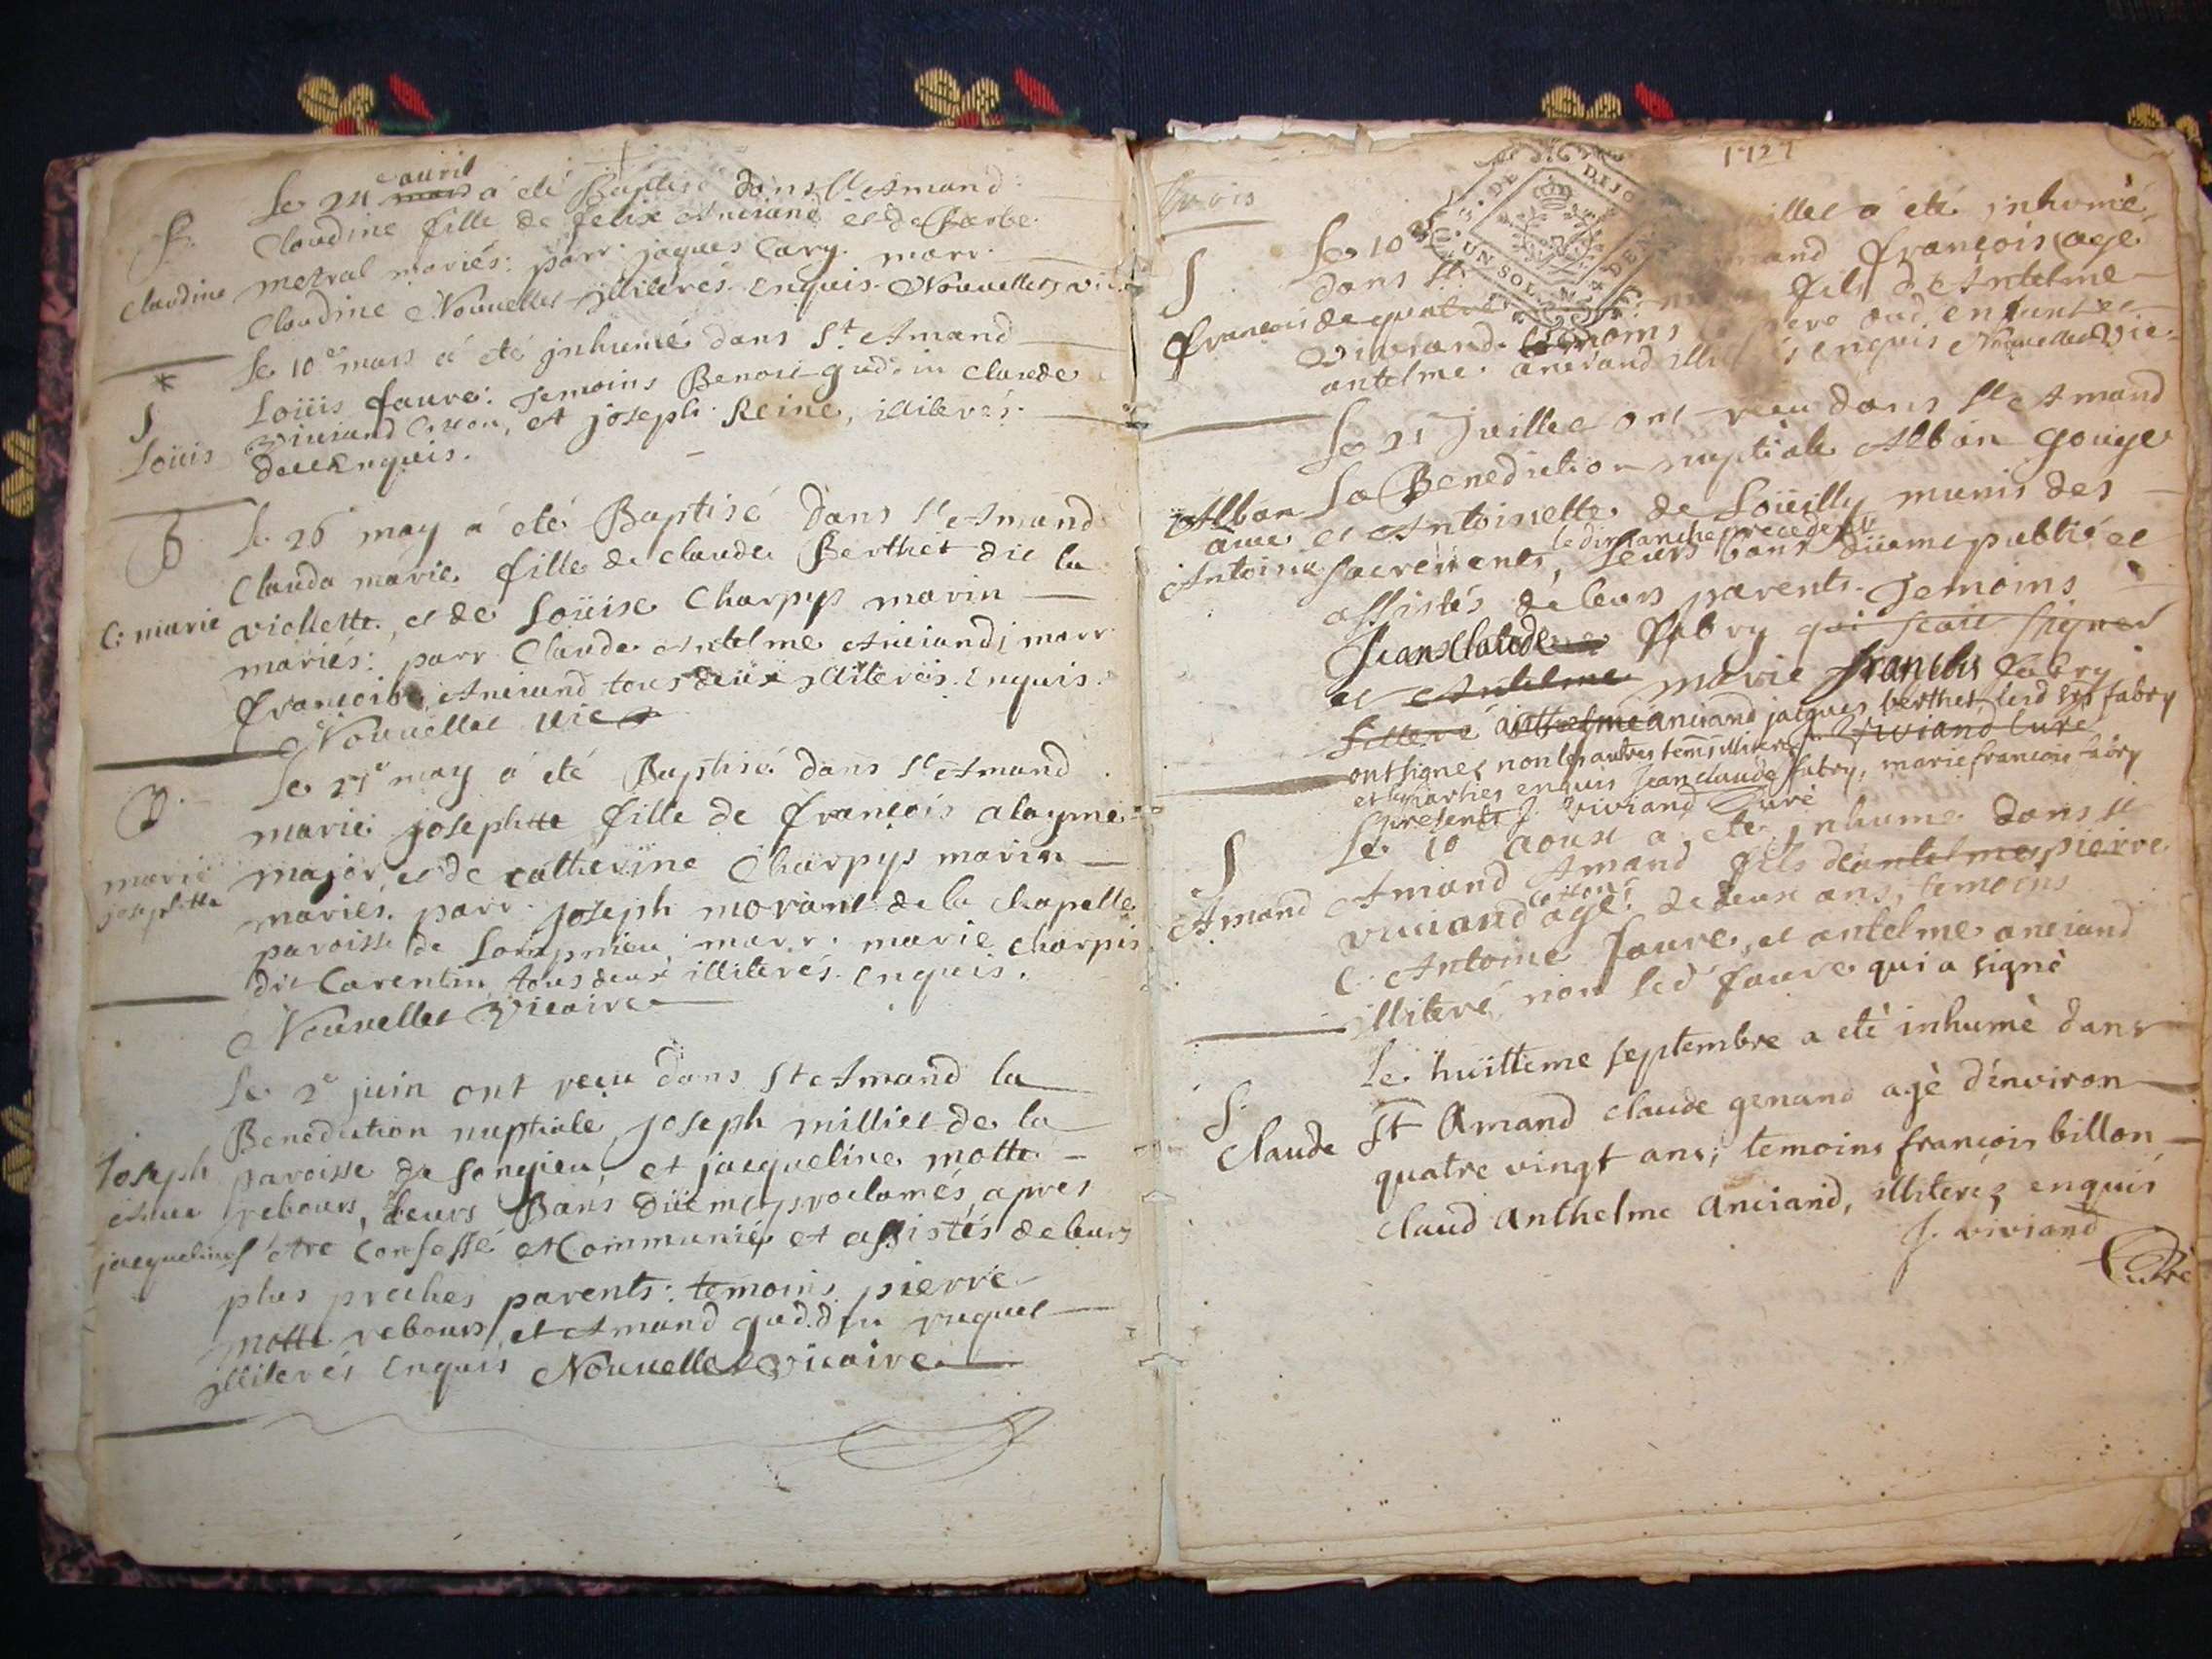 Le 24 auril mars a eté Baptisé dans St Amand
Claudine fille de felix Anciand et de Barbe
S.
Claudine
metral mariés: parr jaques Cary. marr.
Claudine Nouuellet illiterés enquis. Nouuellet vic.
Le 10e mars a eté jnhumé dans St. Amand
*
S
Loüis
Loüis faure: Temoins Benoit gudin Claude
Viuiand Cuson, et joseph Reine, illiterés.
deue Enquis.
B
Le 26 may a eté Baptisé dans St Amand
Clauda marie fille de claude Berthet dit la
C: marie
viollette, et de Loüise Charpys marin
mariés: parr Claude Antelme Anciand; marr
francoise Anciand tous deux jlliterés. Enquis.
Nouuellet vic
B.
Le 27e may a eté Baptisé dans St Amand
marie josephtte fille de françois alayme
marie
josephtte
major, et de catherine Charpys marin
mariés. parr. joseph morant de la chapelle
paroisse de Lompnieu marr. marie charpis
dit Carentin, tous deux illiterés. enquis.
Nouuellet Vicaire
Le 2e juin ont reçu dans St Amand la
Benediction nuptiale joseph milliet de la
Joseph
auec
jacqueline
paroisse de songieu et jacqueline motte
rebours, leurs Bans düeme proclamés, apres
être Confessé et Communié, et assistés de leurs
plus proches parents: temoins pierre
motte rebours, et Amand gud.din ruquet
jlliterés Enquis Nouuellet Vicaire
1727
DE DIJON
UN SOL
DEN.
S
francois
Le 10 juillet a eté jnhumé
dans St Amand françois agé
de quatre fils d'Antelme
Viuiand. temoins le pere dud. enfant et
antelme anciand illiterés enquis Nouuellet Vic.
Le 21 Juillet ont reçu dans St Amand
La Benediction nuptiale Alban gouge
Alban
auec
Antoine
et Antoinette de Loüilly munis des
le dimanche precedent
sacrements, leurs bans düeme publié et
assistés de leurs parents. Temoins
Jean Claude fabry qui scait signer
et Antelme marie francois fabry
anthelme anciand jacques berthet, lesd srs fabry
ont signer non les autres tems illiteres Viviand Curé
et les parties enquis Jean Claude fabry, marie francois fabry
presents J. Viviand Curè
S
Amand
Le 10 aoust a eté jnhume dans St
Amand Amand fils de antelme pierre
viuiand cuson agé de deux ans, temoins
C. Antoine faure, et antelme anciand
jlliteré non led faure qui a signè
Le huittieme septembre a etè inhumè dans
S.
Claude
St Amand claude genand agè d'environ
quatre vingt ans; temoins francois billon
claud anthelme anciand, illiterés enquis
J. viviand
Curè